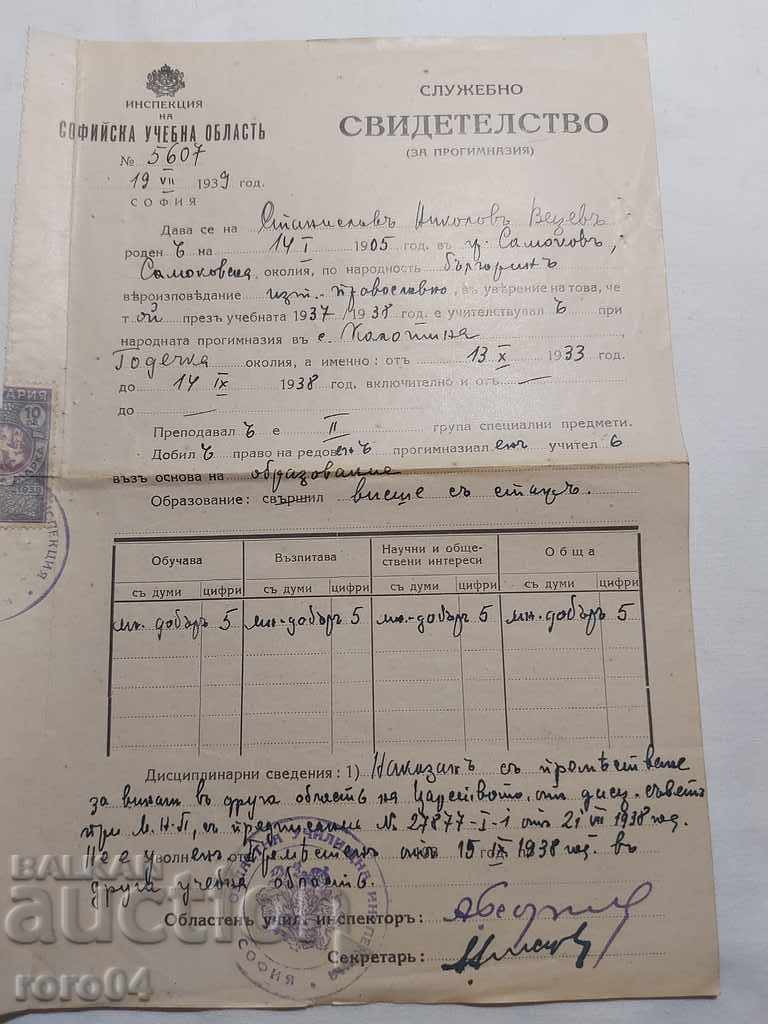 ИНСПЕКЦИЯ
НА
СОФИЙСКА УЧЕБНА ОБЛАСТЬ
№ 5607
19 VII 1939 год.
СОФИЯ
СЛУЖЕБНО
СВИДЕТЕЛСТВО
(ЗА ПРОГИМНАЗИЯ)
Дава се на Станиславъ Николовъ
роден ъ на 14 I 1905 год. въ гр. Самоковъ,
Самоковска, околия, по народность българинъ
вѣроизповѣдание изт.-православно, въ уверение на това, че
той презъ учебната 1937/1938 год. е учителствувал ъ при
народната прогимназия въ с. Калотина
Годечка околия, а именно: отъ 13 X 1933 год.
до 14 IX 1938 год. включително и отъ —
до —
Преподавал ъ е II група специални предмети.
Добил ъ право на редовенъ прогимназиаленъ учител
възъ основа на образование
Образование: свършил висше съ стажъ.
Обучава Възпитава Научни и обще- Обща
ствени интереси
съ думи цифри съ думи цифри съ думи цифри съ думи цифри
мн. добъръ 5 мн.-добъръ 5 мн.-добъръ 5 мн.-добъръ 5
Дисциплинарни сведения: 1) Наказанъ съ премѣстване
за винаги въ друга область на Царството, отъ дисц. съветъ
при М.Н.П., съ предписание № 27877-I-1 отъ 21 VII 1938 год.
Не е уволненъ отъ 15 IX 1938 год. въ
друга учебна область.
Областенъ учил. инспекторъ:
Секретарь:
ОБЛАСТНА УЧИЛИЩНА ИНСПЕКЦИЯ
СОФИЯ
АРИЯ
10
1938
ИНСПЕКЦИЯ
БАЛКАН
auction
roro04